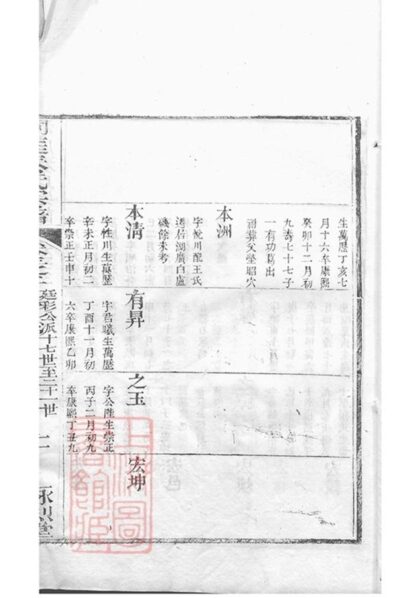 生萬歷丁亥七
月十六卒康熙
癸卯十二月初
九壽七十七子
一有功葛出
葬父塋昭穴
本洲
字悅川配王氏
遷居湖廣白盧
磯餘未考
本清
字惟川生萬歷
辛未正月初二
卒崇正壬申十
有昇
字君曦生萬歷
丁酉十一月初
六卒康熙乙卯
之玉
字公陛生崇正
丙子二月初九
卒康熙丁丑九
宏坤
公派十七世至二十一世
一
堂
上海圖書館藏